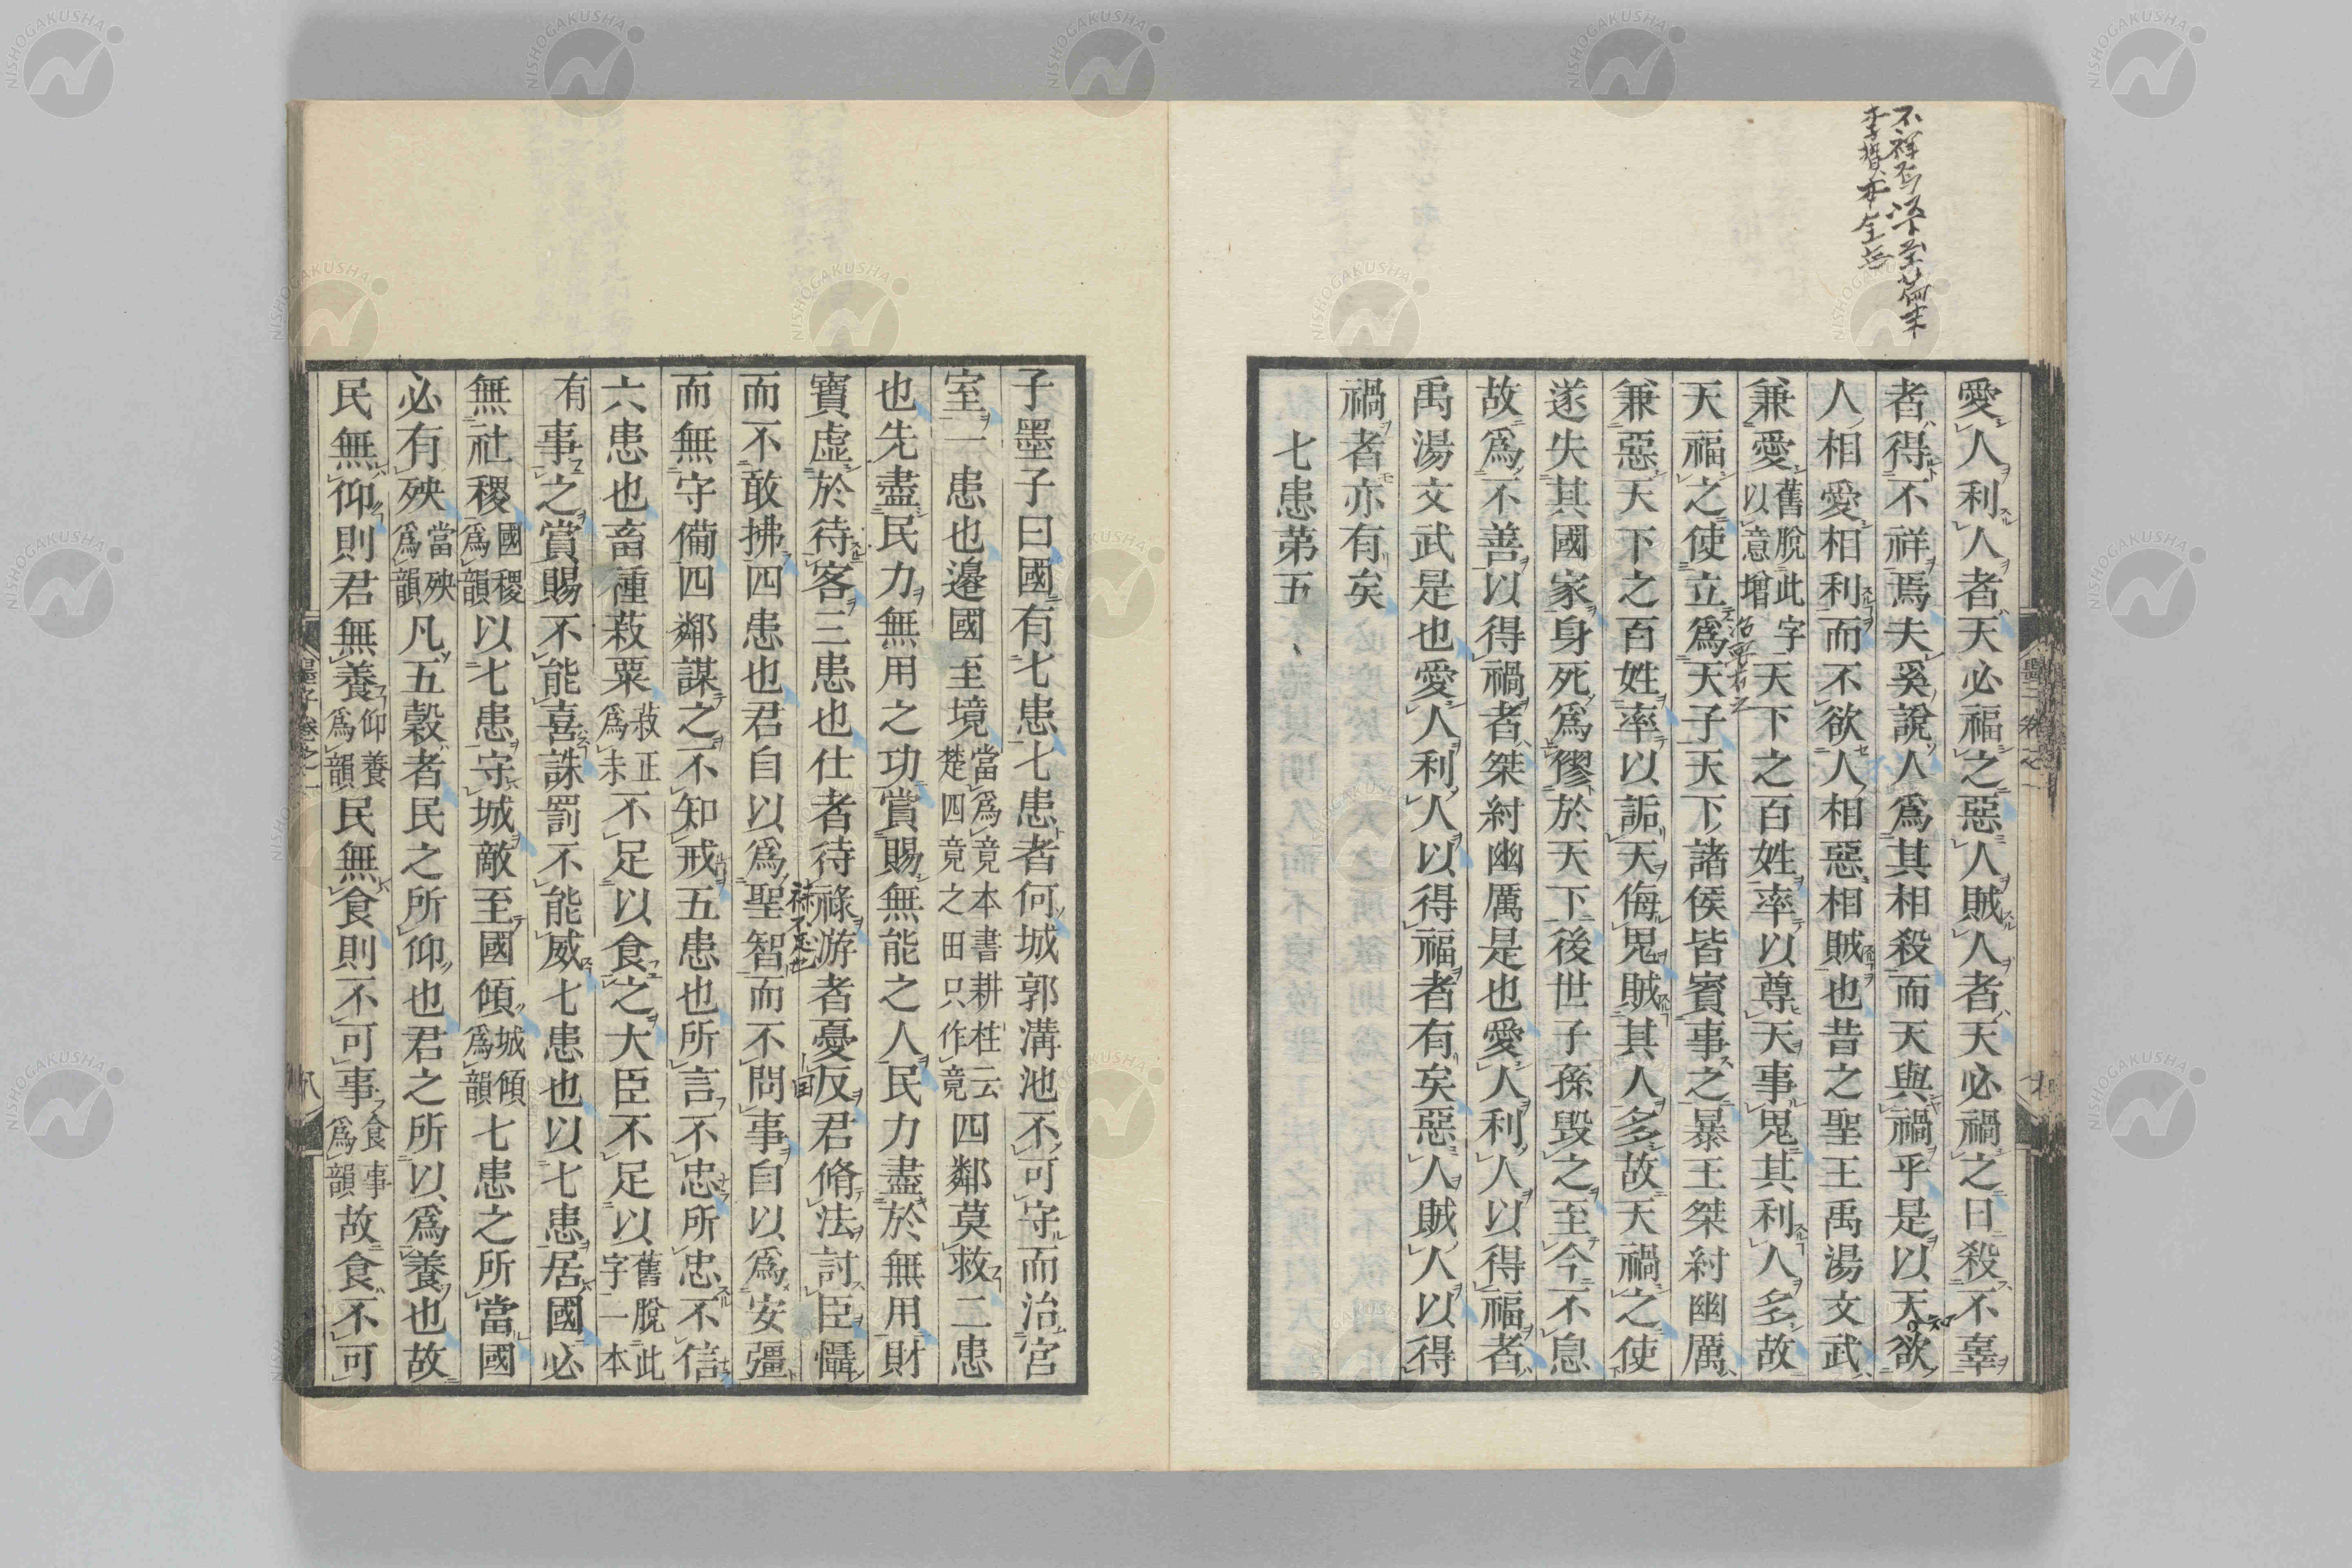 不祥焉
愛人利人者天必福之惡人賊人者天必禍之曰殺不辜
者得不祥焉夫奚說人爲其相殺而天與禍乎是以天欲
人相愛相利而不欲人相惡相賊也昔之聖王禹湯文武
兼愛舊脫此字以意增天下之百姓率以尊天事鬼其利人多故
天福之使立爲天子天下諸侯皆賓事之暴王桀紂幽厲
兼惡天下之百姓率以詬天侮鬼賊其人多故天禍之使
遂失其國家身死爲僇於天下後世子孫毀之至今不息
故爲不善以得禍者桀紂幽厲是也愛人利人以得福者
禹湯文武是也愛人利人以得福者有矣惡人賊人以得
禍者亦有矣
七患第五
子墨子曰國有七患七患者何城郭溝池不可守而治宮
室一患也邊國至境當爲竟本書耕柱云楚四竟之田只作竟四鄰莫救二患
也先盡民力無用之功賞賜無能之人民力盡於無用財
寶虛於待客三患也仕者待祿游者憂反君脩法討臣懾
而不敢拂四患也君自以爲聖智而不問事自以爲安彊
而無守備四鄰謀之不知戒五患也所言不忠所忠不信
六患也畜種菽粟菽正爲尗不足以食之大臣不足以舊脫此字一本
有事之賞賜不能喜誅罰不能威七患也以七患居國必
無社稷國稷爲韻以七患守城敵至國傾城傾爲韻七患之所當國
必有殃當殃爲韻凡五穀者民之所仰也君之所以爲養也故
民無仰則君無養仰養爲韻民無食則不可事食事爲韻故食不可
墨子卷之一
八
NISHOGAKUSHA